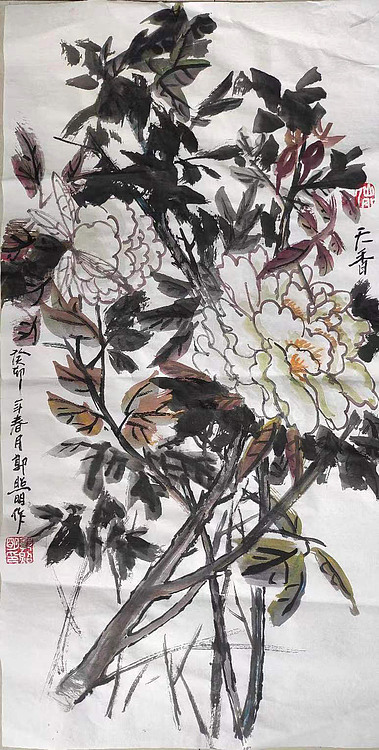 天香
癸卯年春月郭熙明作